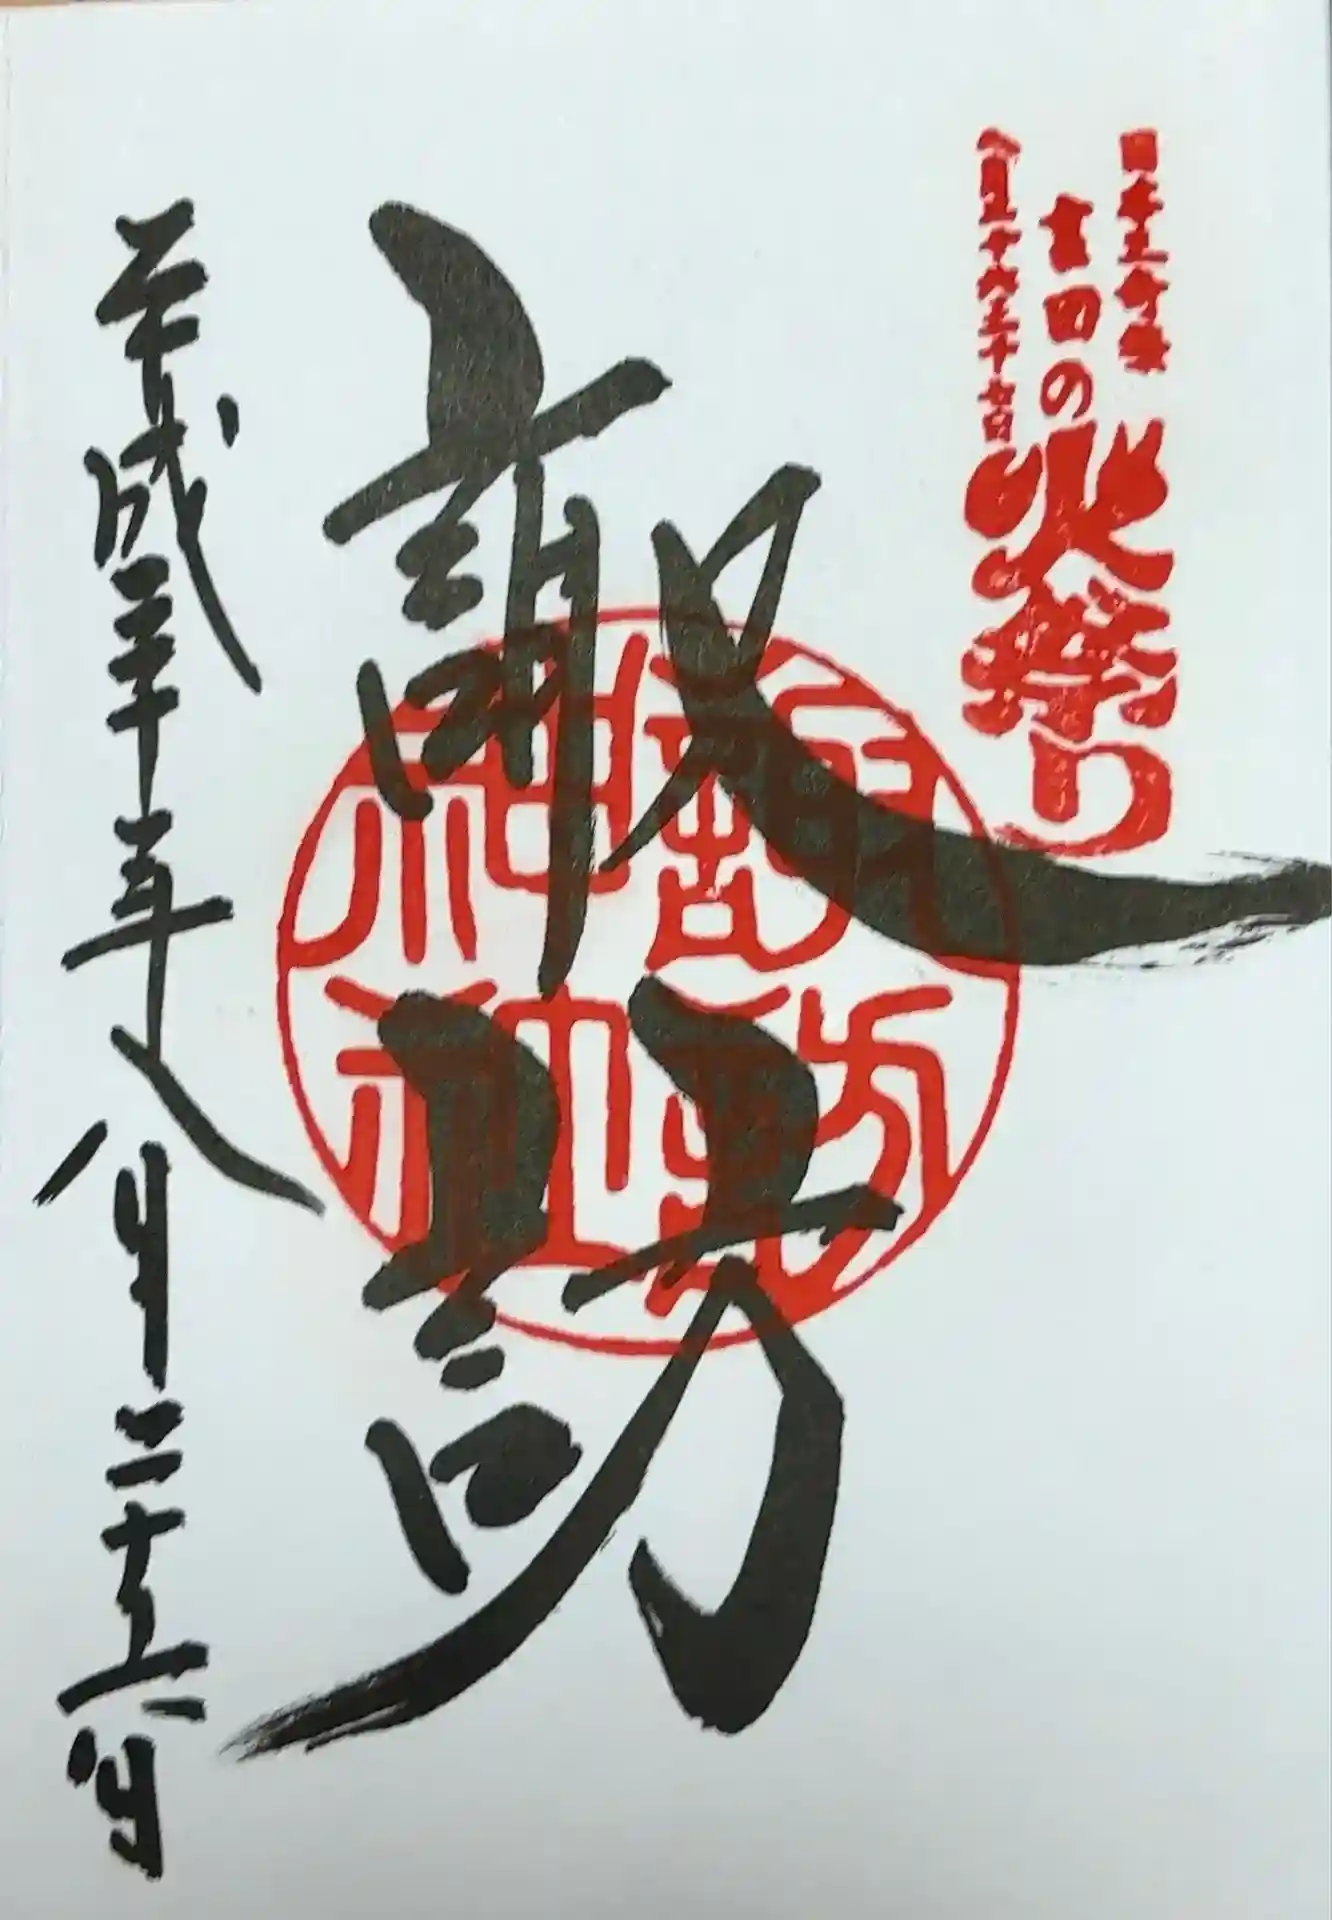 日本三奇祭
吉田の火祭り
八月二十六二十七日
諏訪
諏訪
神社
平成三十年八月二十六日